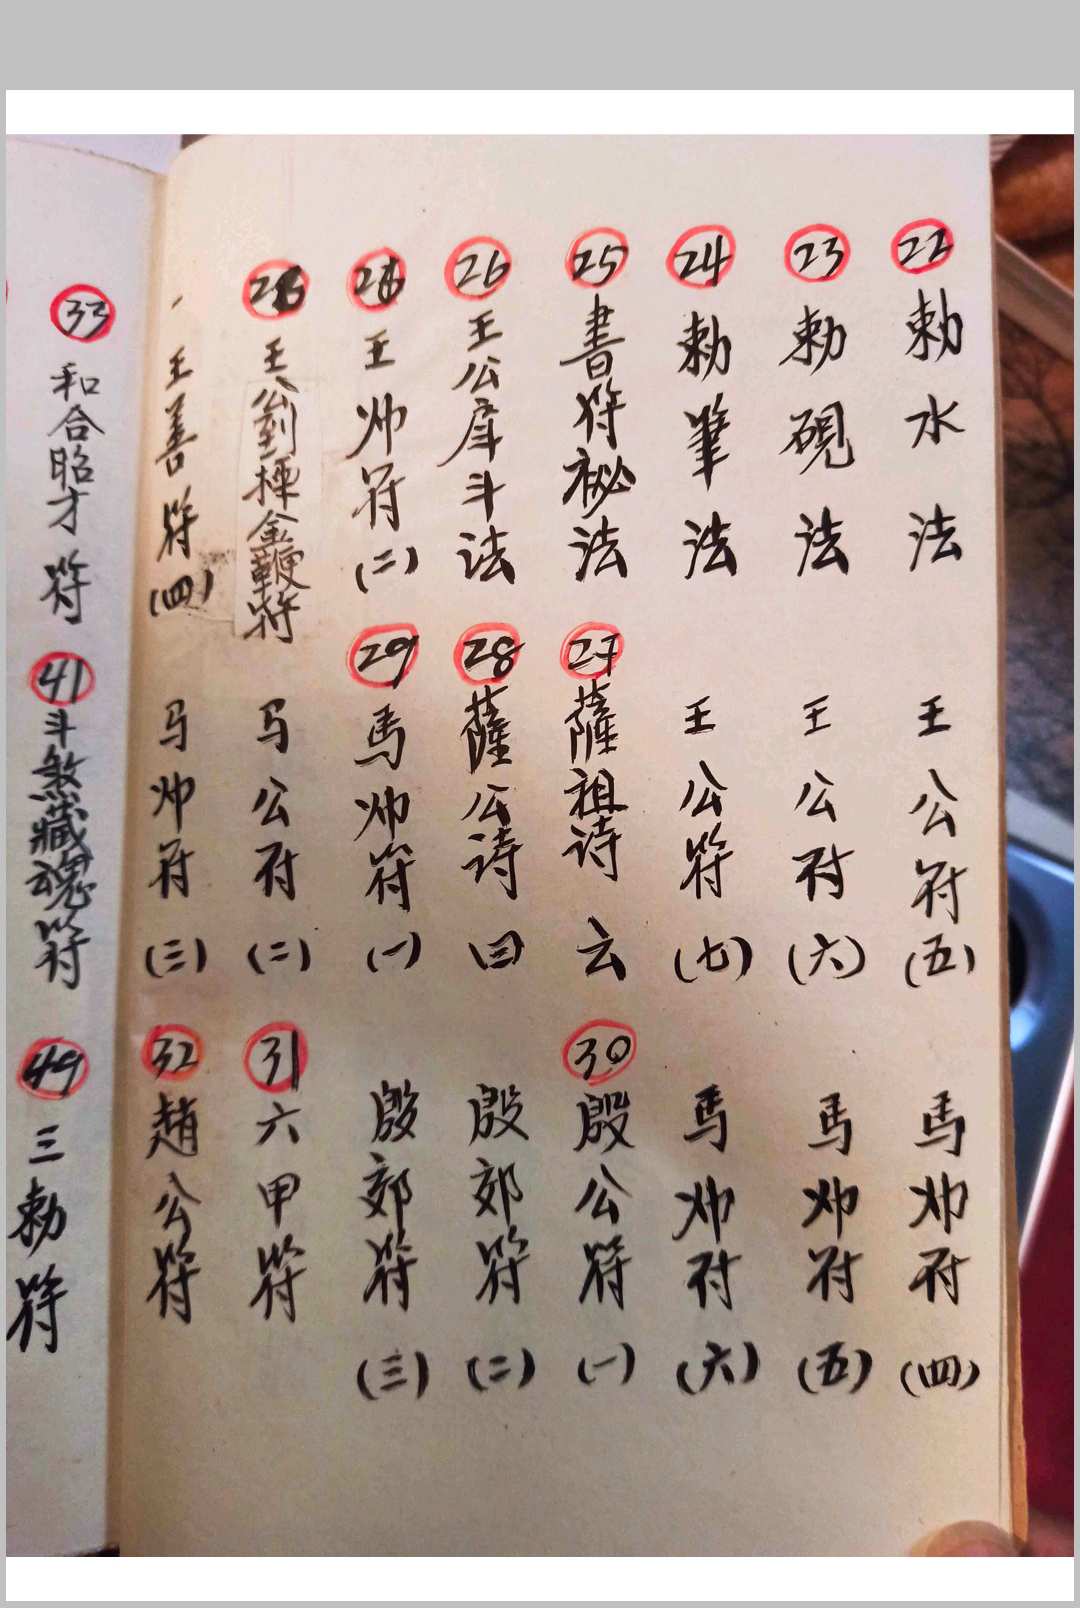 22 勅水法
23 勅硯法
24 勅筆法
25 書符祕法
26 王公𢩑斗法
王帅符(二)
王公剳捶金鞭符
王善符(四)
王公符(五)
王公符(六)
王公符(七)
27 薩祖诗云
28 薩公诗曰
29 馬帅符(一)
马公符(二)
马帅符(三)
馬帅符(四)
馬帅符(五)
馬帅符(六)
30 殷公符(一)
殷郊符(二)
殷郊符(三)
31 六甲符
32 趙公符
33 和合昭才符
41 斗煞藏魂符
49 三勅符